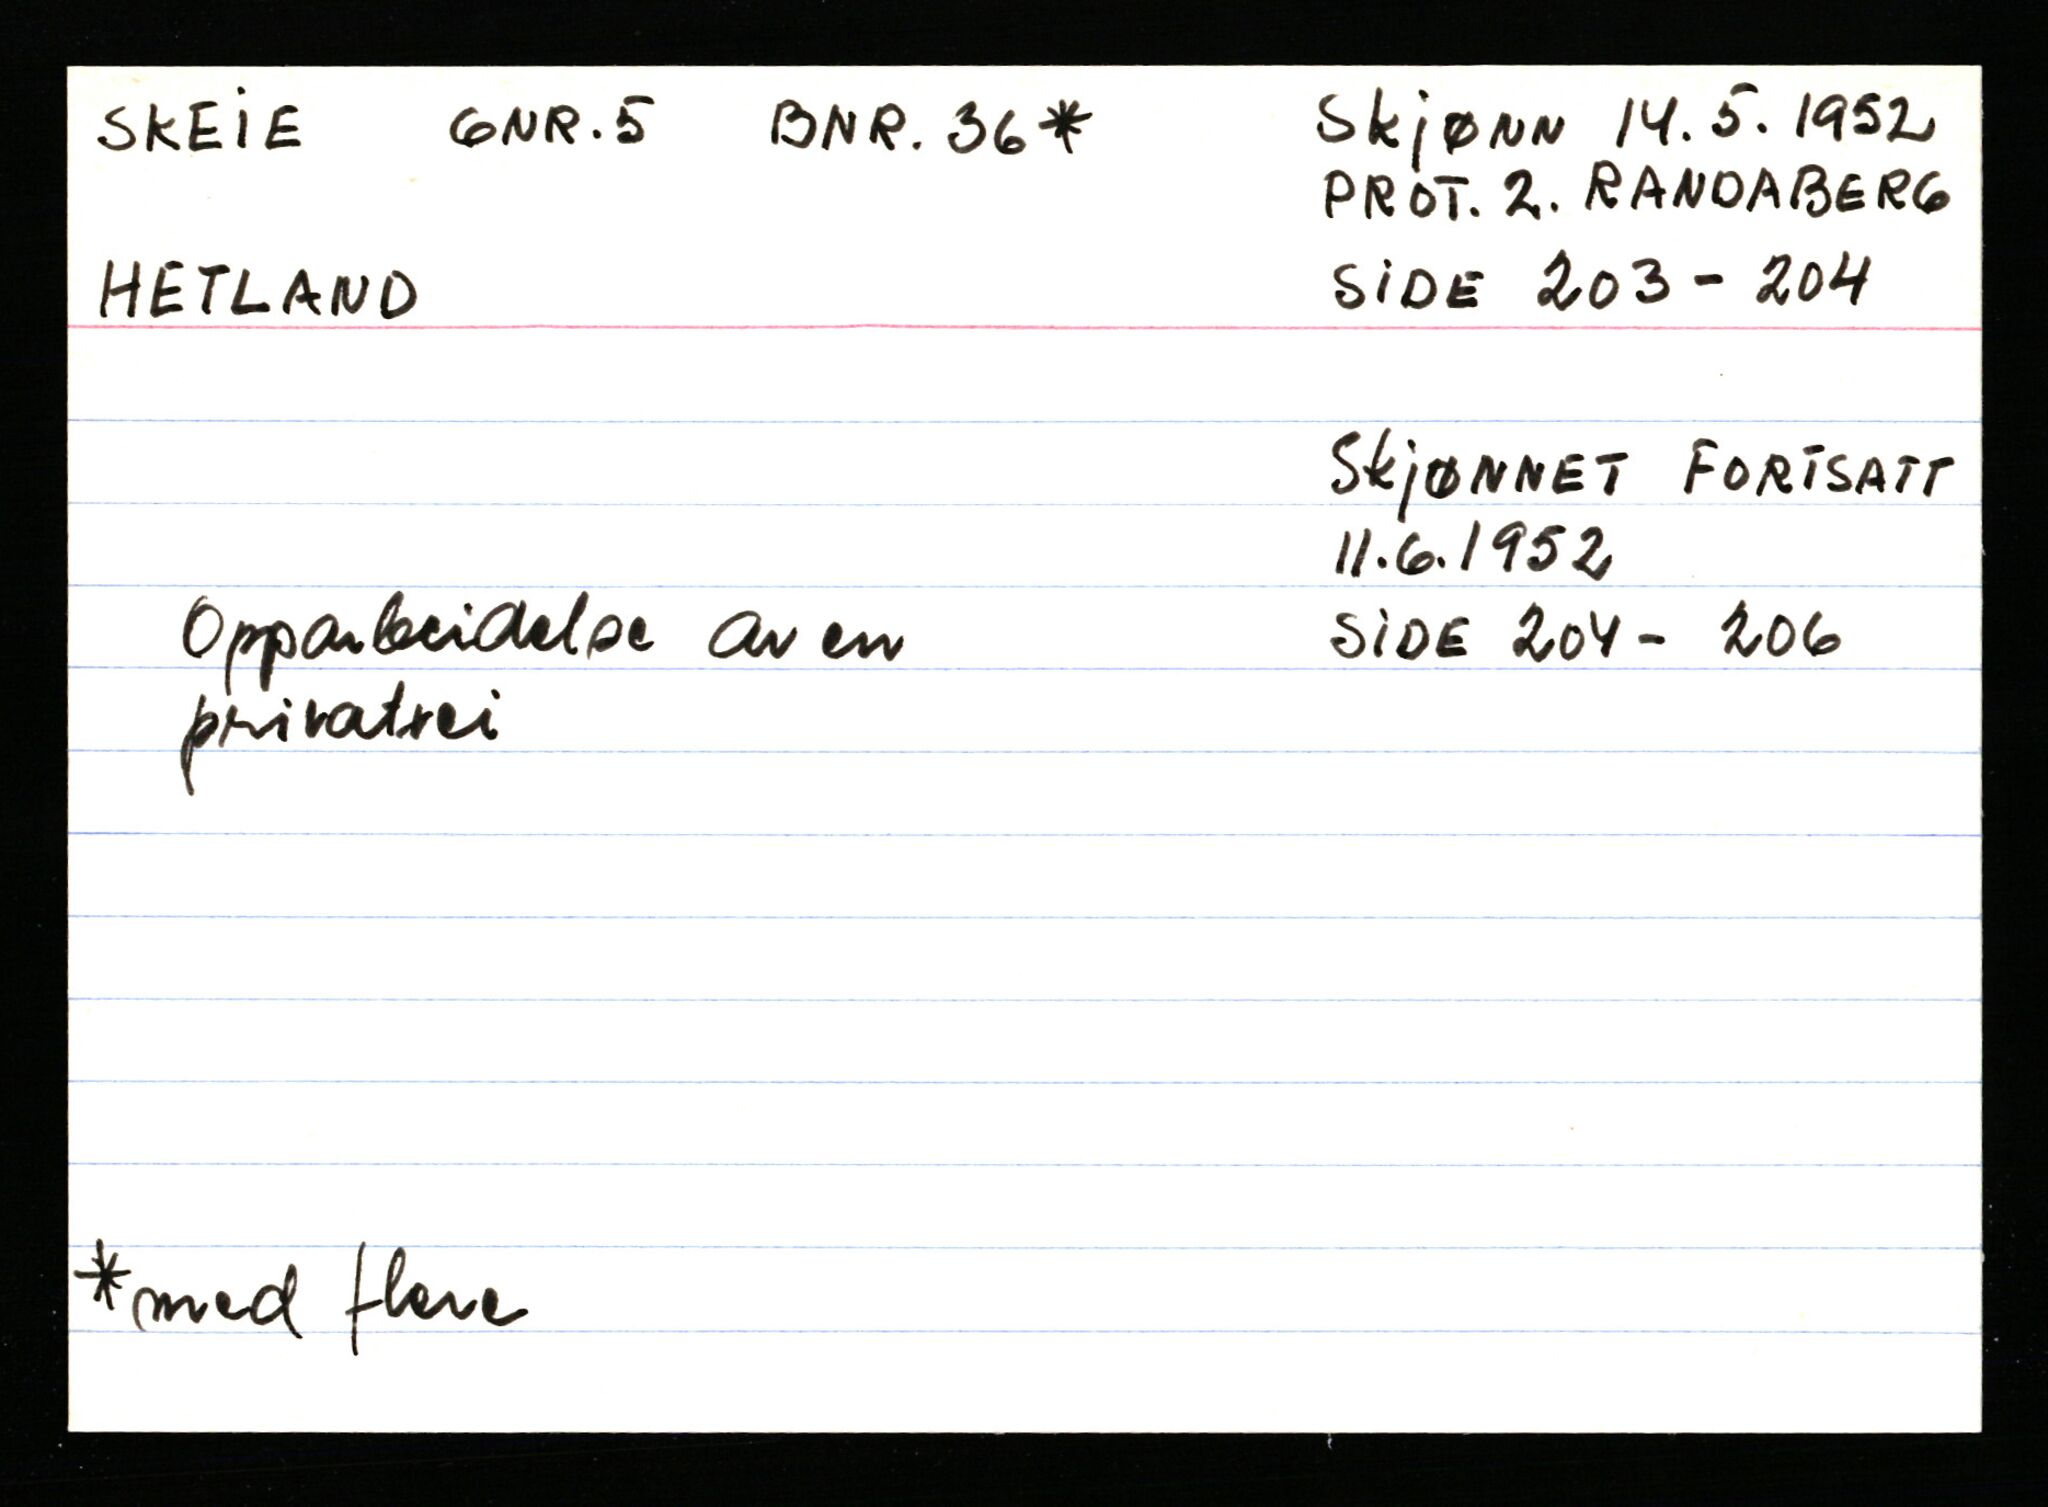 SKEIE GNR.5 BNR. 36* Skjønn 14.5.1952
PROT. 2. RANDABERG
HETLAND SIDE 203 - 204
Skjønnet FORTSATT
11.6.1952
Opparbeidelse av en SIDE 204 - 206
privatvei
*med flere